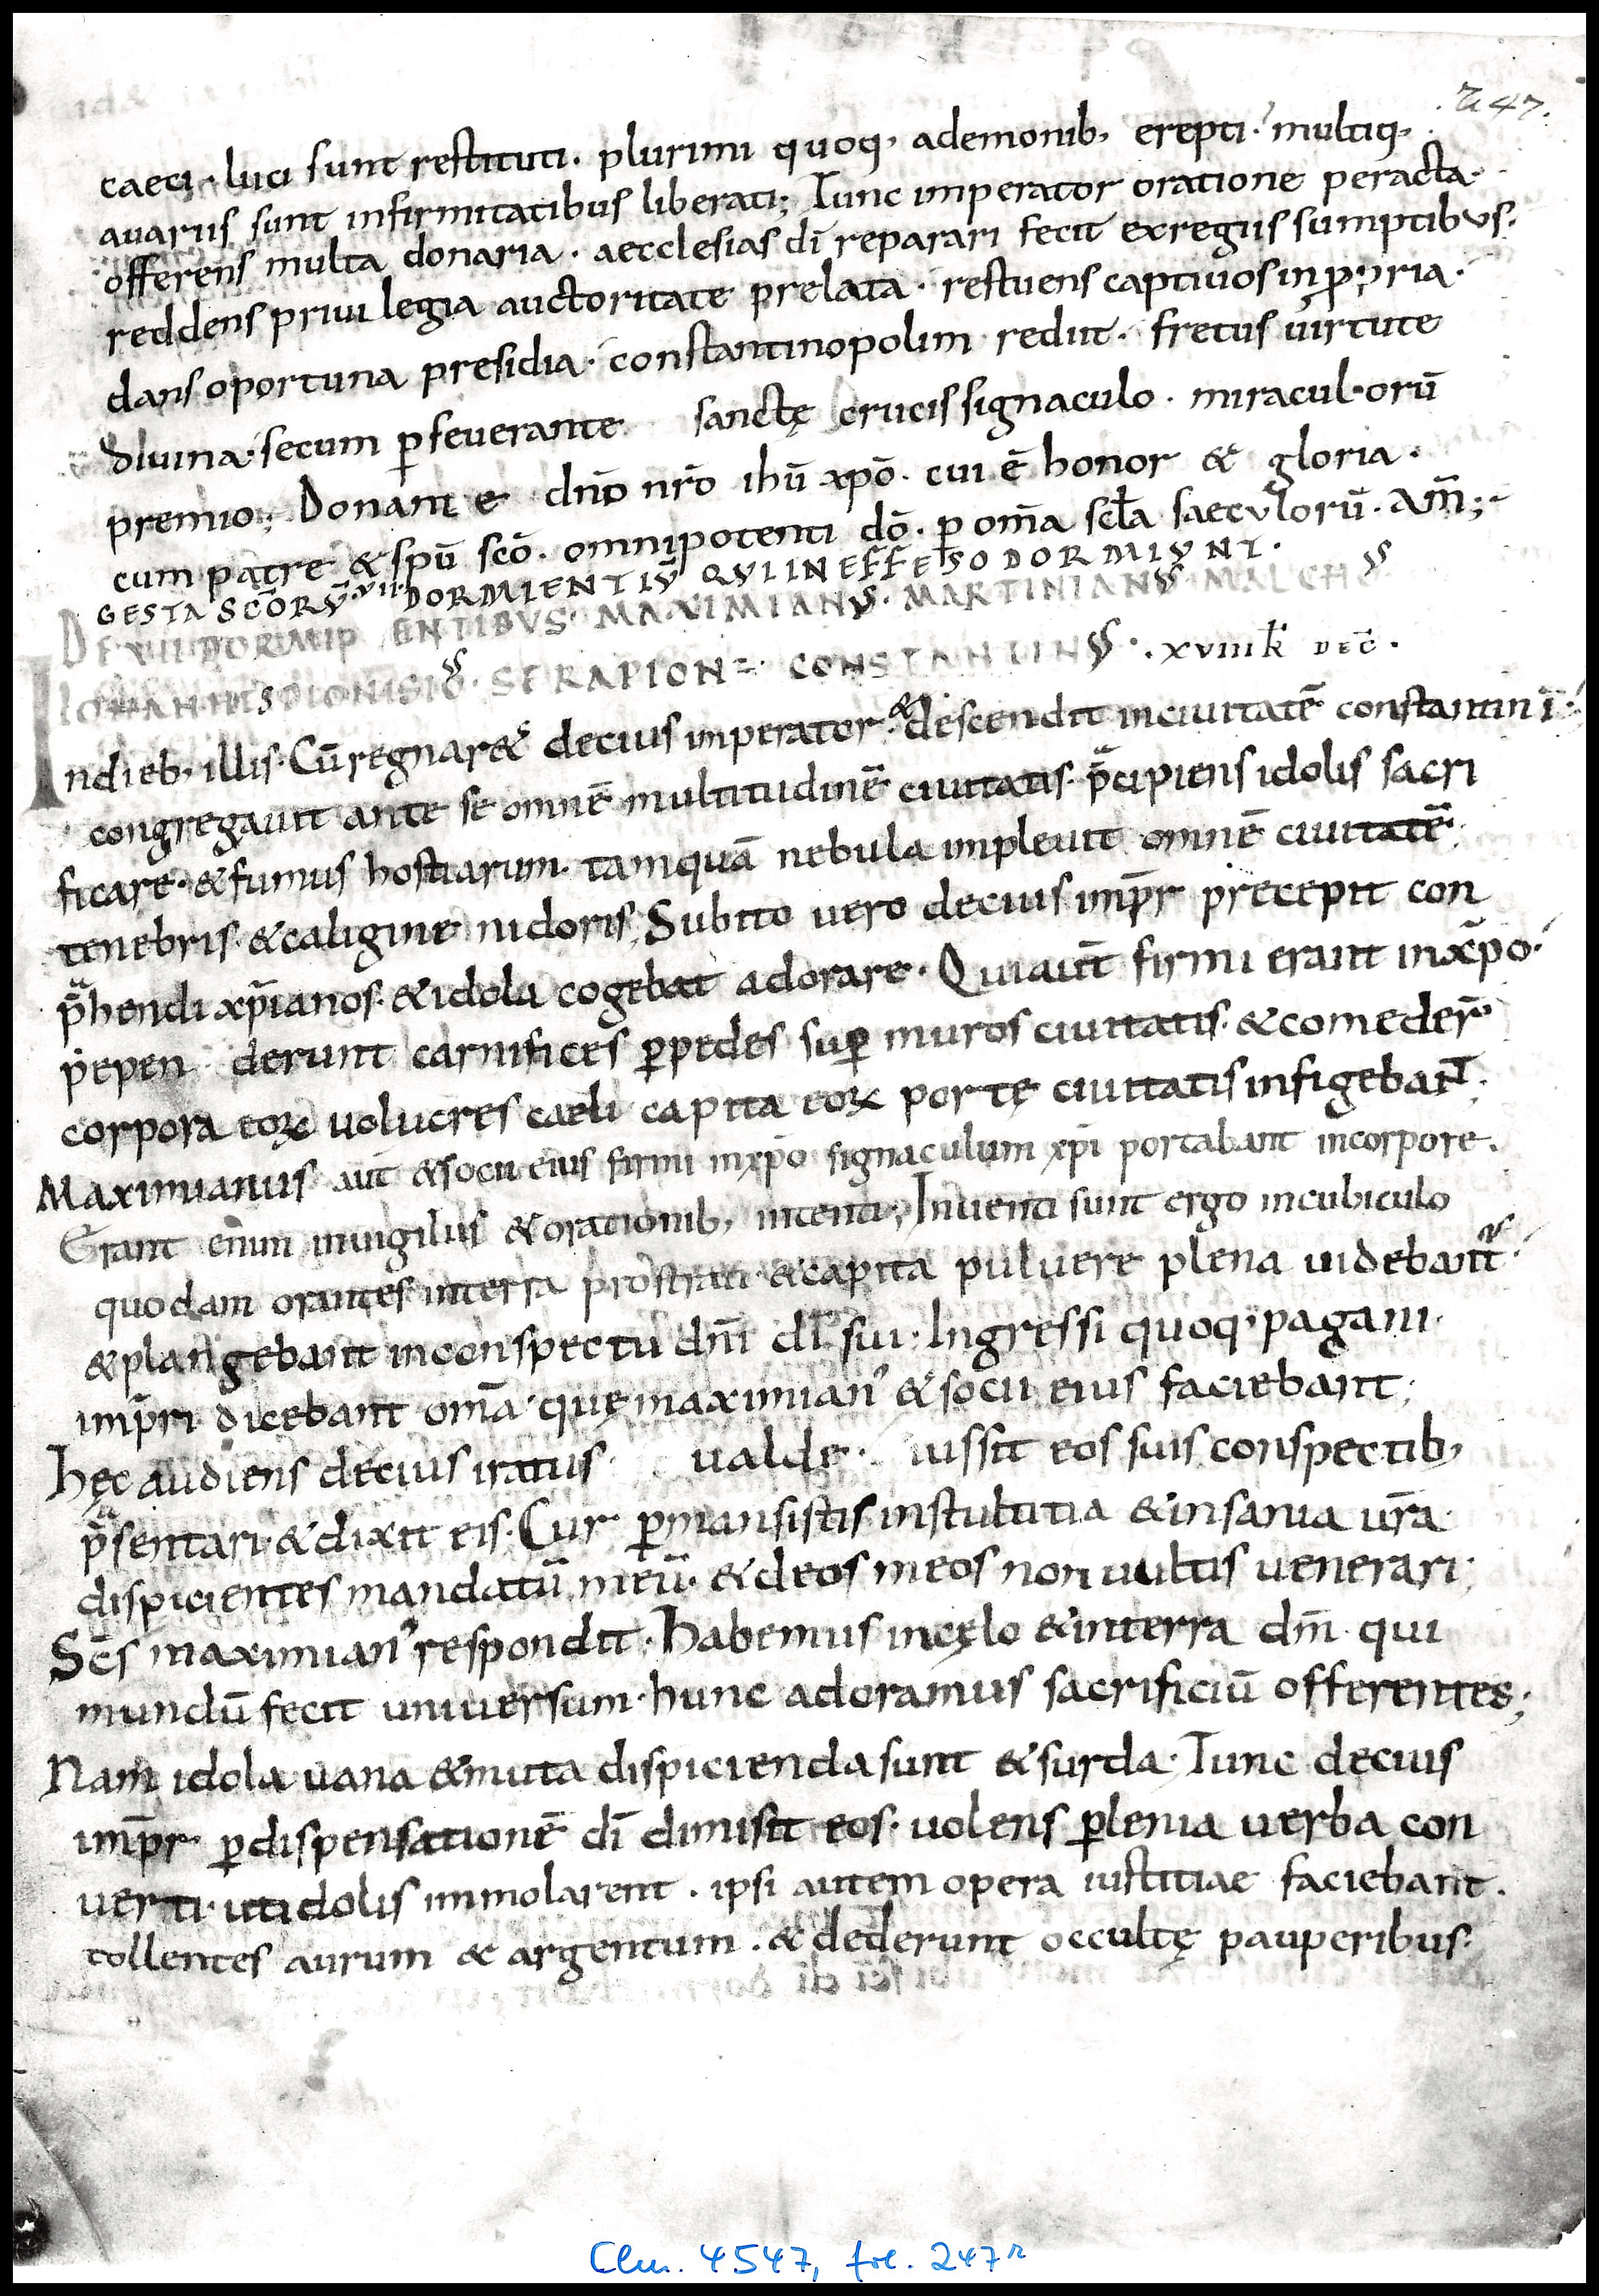 247.
caeci · luci sunt restituti · plurimi quoq, ademonib, erepti · multiq,
auariis sunt infirmitatibus liberati; Tunc imperator oratione peracta ·
offerens multa donaria · aecclesias dī reparari fecit exregiis sumptibus ·
reddens priuilegia auctoritate prelata · restuens captiuos in propria ·
dans oportuna presidia · constantinopolim rediit · fretus uirtute
diuina · secum ꝑseuerante sanctę crucis signaculo · miraculorū
premio; Donante dn̄o nr̄o ihū xp̄o · cui ē honor & gloria ·
cum patre & sp̄u sc̄o · omnipotenti dō · ꝑ om̄a scl̄a saeculorū · am̄;
GESTA SC̄ORŪ · VII · DORMIENTIŪ QUI IN EFFESO DORMIUNT ·
DE VII DORMIENTIBUS · MAXIMIANUS · MARTINIANUS · MALCHUS
IOHANNIS DIONISIUS · SERAPION · CONSTANTINUS · XVIIII k̄ DEC̄ ·
Indieb, illis · Cū regnar& decius imperator · & descendit inciuitatē constantini ·
congregauit ante se omnē multitudinē ciuitatis · p̄cipiens idolis sacri
ficare · & fumus hostiarum · tamquā nebula impleuit omnē ciuitatē ·
tenebris · & caligine nidoris; Subito uero decius imp̄r precepit con
p̄hendi xp̄ianos · & idola cogebat adorare · Qui aūt firmi erant inxp̄o ·
pependerunt carnifices ꝑpedes suꝑ muros ciuitatis · & comeder̄
corpora eoꝝ uolucres caeli capita eoꝝ portę ciuitatis infigebant ·
Maximianus aūt & socii eius firmi inxp̄o signaculum xp̄i portabant incorpore ·
Erant enim inuigiliis & orationib, intenti; Inuenti sunt ergo incubiculo
quodam orantes interra prostrati · & capita puluere plena uidebant ·
& plangebant inconspectu dn̄i dī sui · Ingressi quoq, pagani ·
imp̄ri dicebant om̄a quę maximian' & socii eius faciebant;
Hęc audiens decius iratus · ualde · iussit eos suis conspectib,
p̄sentari · & dixit eis · Cur ꝑmansistis instultitia & insania ur̄a ·
dispicientes mandatū meū · & deos meos non uultis uenerari;
Sc̄s maximian' respondit · Habemus incęlo & interra dm̄ · qui
mundū fecit uniuersum · hunc adoramus sacrificiū offerentes;
Nam idola uana & muta dispicienda sunt & surda · Tunc decius
imp̄r · ꝑdispensationē dī dimisit eos · uolens ꝑlenia uerba con
uerti · utidolis immolarent · ipsi autem opera iustitiae faciebant ·
tollentes aurum & argentum · & dederunt occultę pauperibus ·
Clm. 4547, fol. 247r